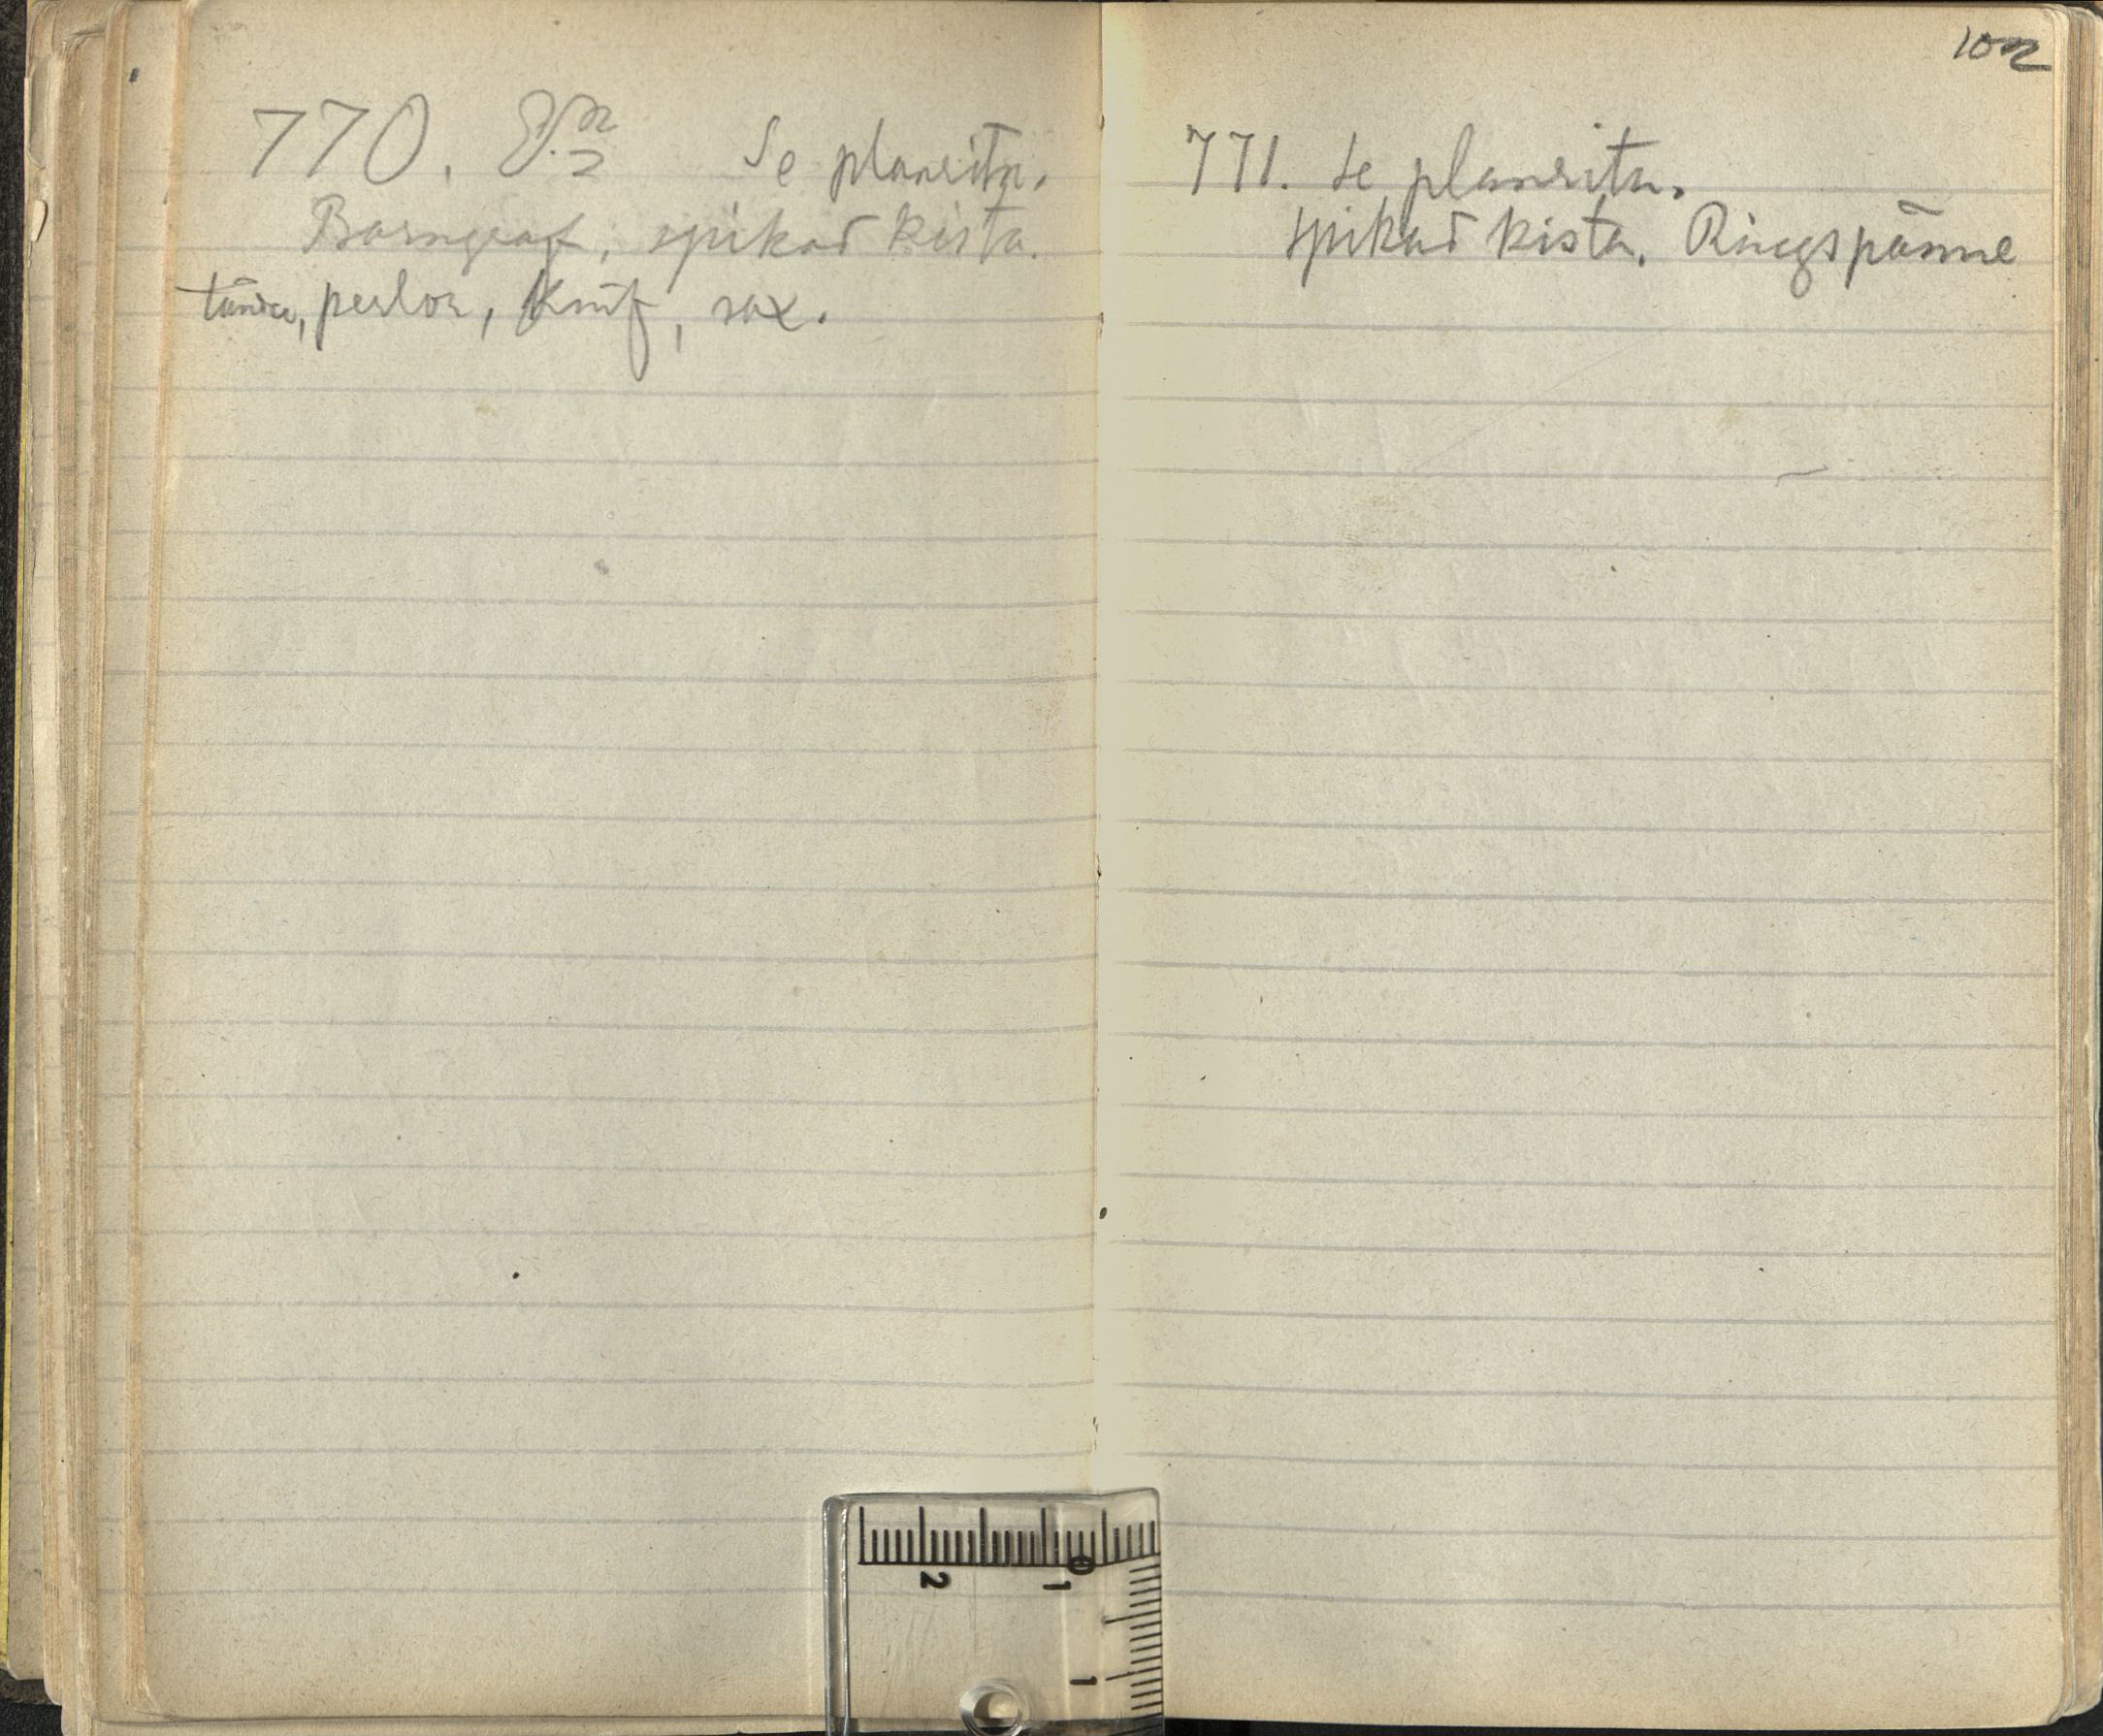 770. Se planrita.
Barngraf, spikad kista.
tänder, perlor, Knif, sax.
102
771. Se planrita.
spikad kista. Ringspänne
2 1 0
1